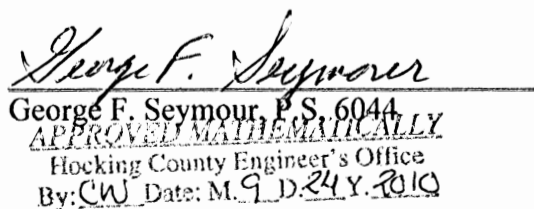 George F. Seymour
George F. Seymour, P.S. 6044
APPROVED MATHEMATICALLY
Hocking County Engineer's Office
By: CW Date: M. 9 D. 24 Y. 2010